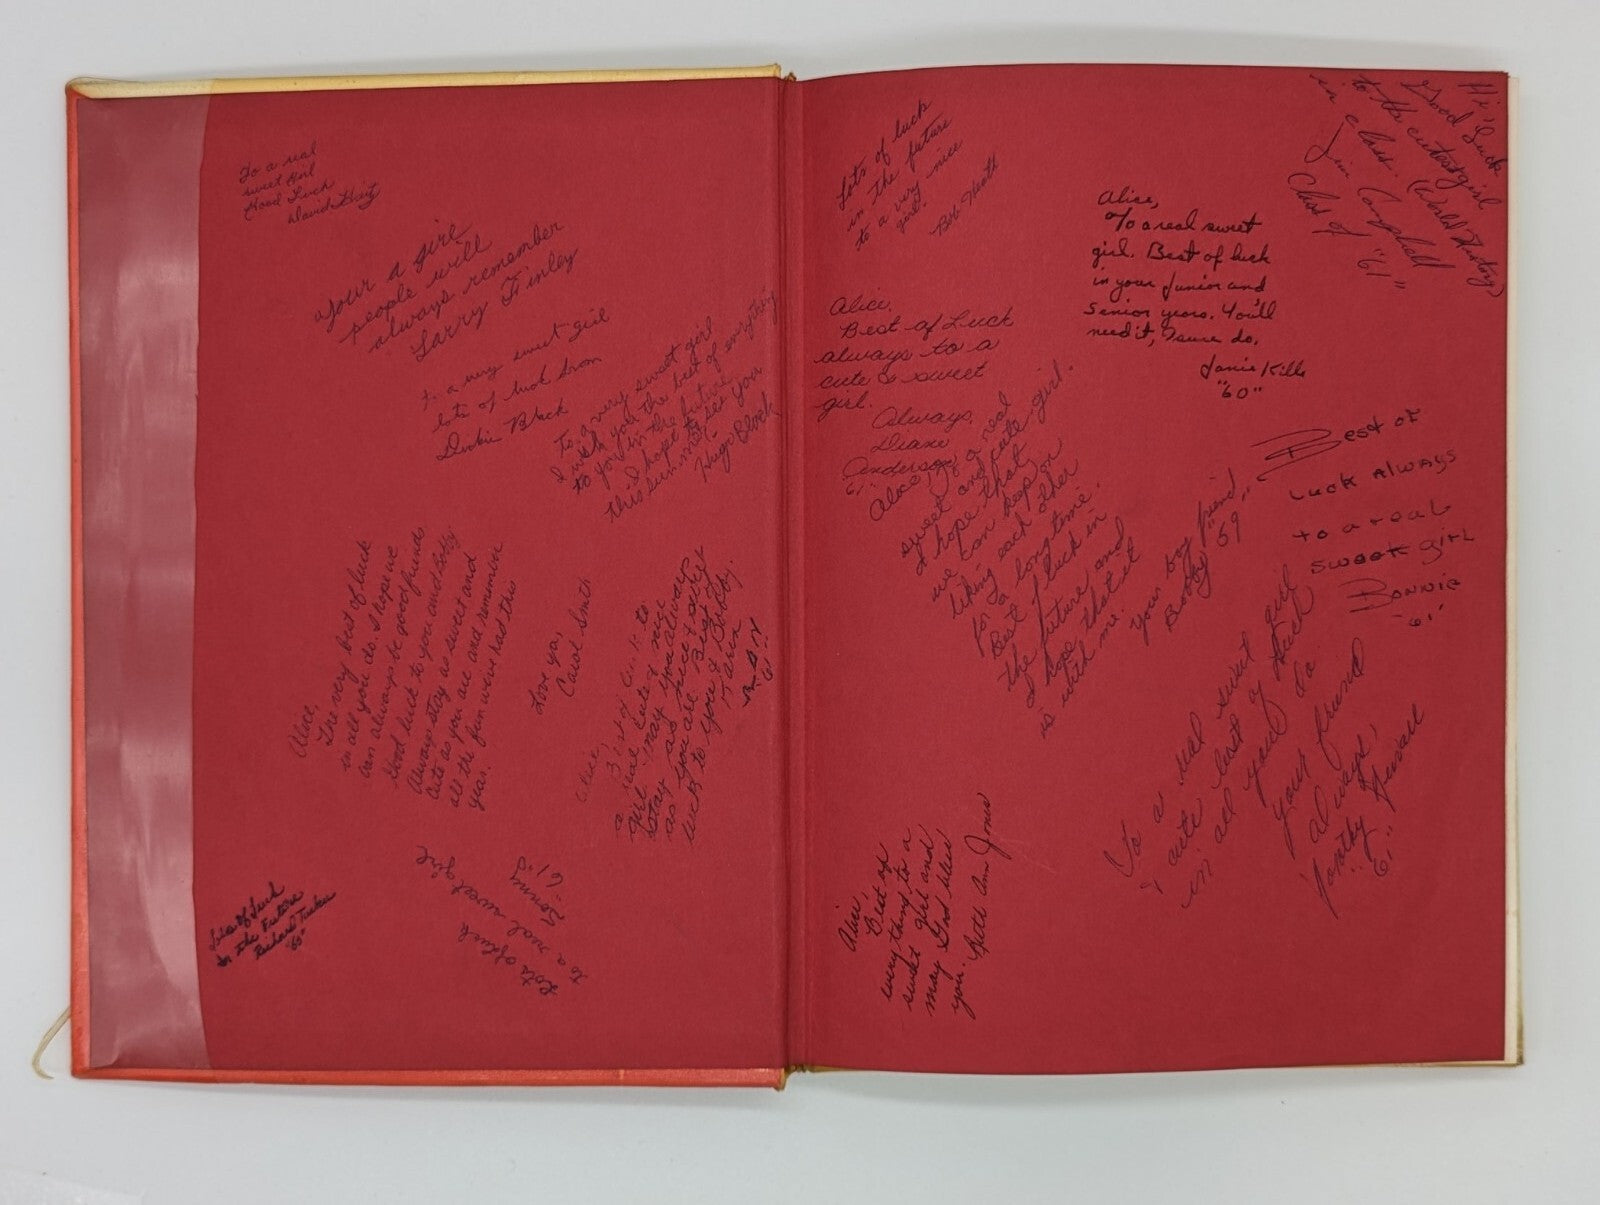 To a real
sweet girl
Good Luck
David
your a girl
people will
always remember
Larry Finley
To a very sweet girl
lots of luck from
Dickie Black
To a very sweet girl
I wish you the best of everything
to you in the future
I hope to see you
this summer.
Hugo Block
Alice,
The very best of luck
in all you do. I hope we
can always be good friends
Good luck to you and Bobby
Always stay as sweet and
Cute as you are and remember
all the fun we've had this
year.
Love ya,
Carol Smith
Alice,
Best of luck to
a real cute & nice
girl. May you always
stay as nice & sweet
as you are. Best of
luck to you & Bobby.
61"
Lots of Luck
in the Future
Richard
Lots of luck
to a real sweet girl
61"
Lots of luck
in the future
to a very nice
girl.
Bob Heath
Hi!
Good Luck
to the cutest girl
in class. (World History)
Jim Campbell
Class of "61"
Alice,
To a real sweet
girl. Best of luck
in your Junior and
Senior years. You'll
need it, I sure do.
Janie Kills
"60"
Alice,
Best of Luck
always to a
cute & sweet
girl.
Always,
Diane
Anderson
61"
Alice, To a real
sweet and cute girl.
I hope that
we can keep on
liking each other
for a long time.
Best of luck in
the future and
I hope that it
is with me.
Your boy friend
Bobby "59"
Best of
Luck Always
to a real
sweet girl
Bonnie
61"
To a real sweet
& cute girl
best of luck
in all you do
your friend
always,
Kathy
61"
Alice,
Best of
everything to a
sweet girl and
may God bless
you.
Beth Ann Jones